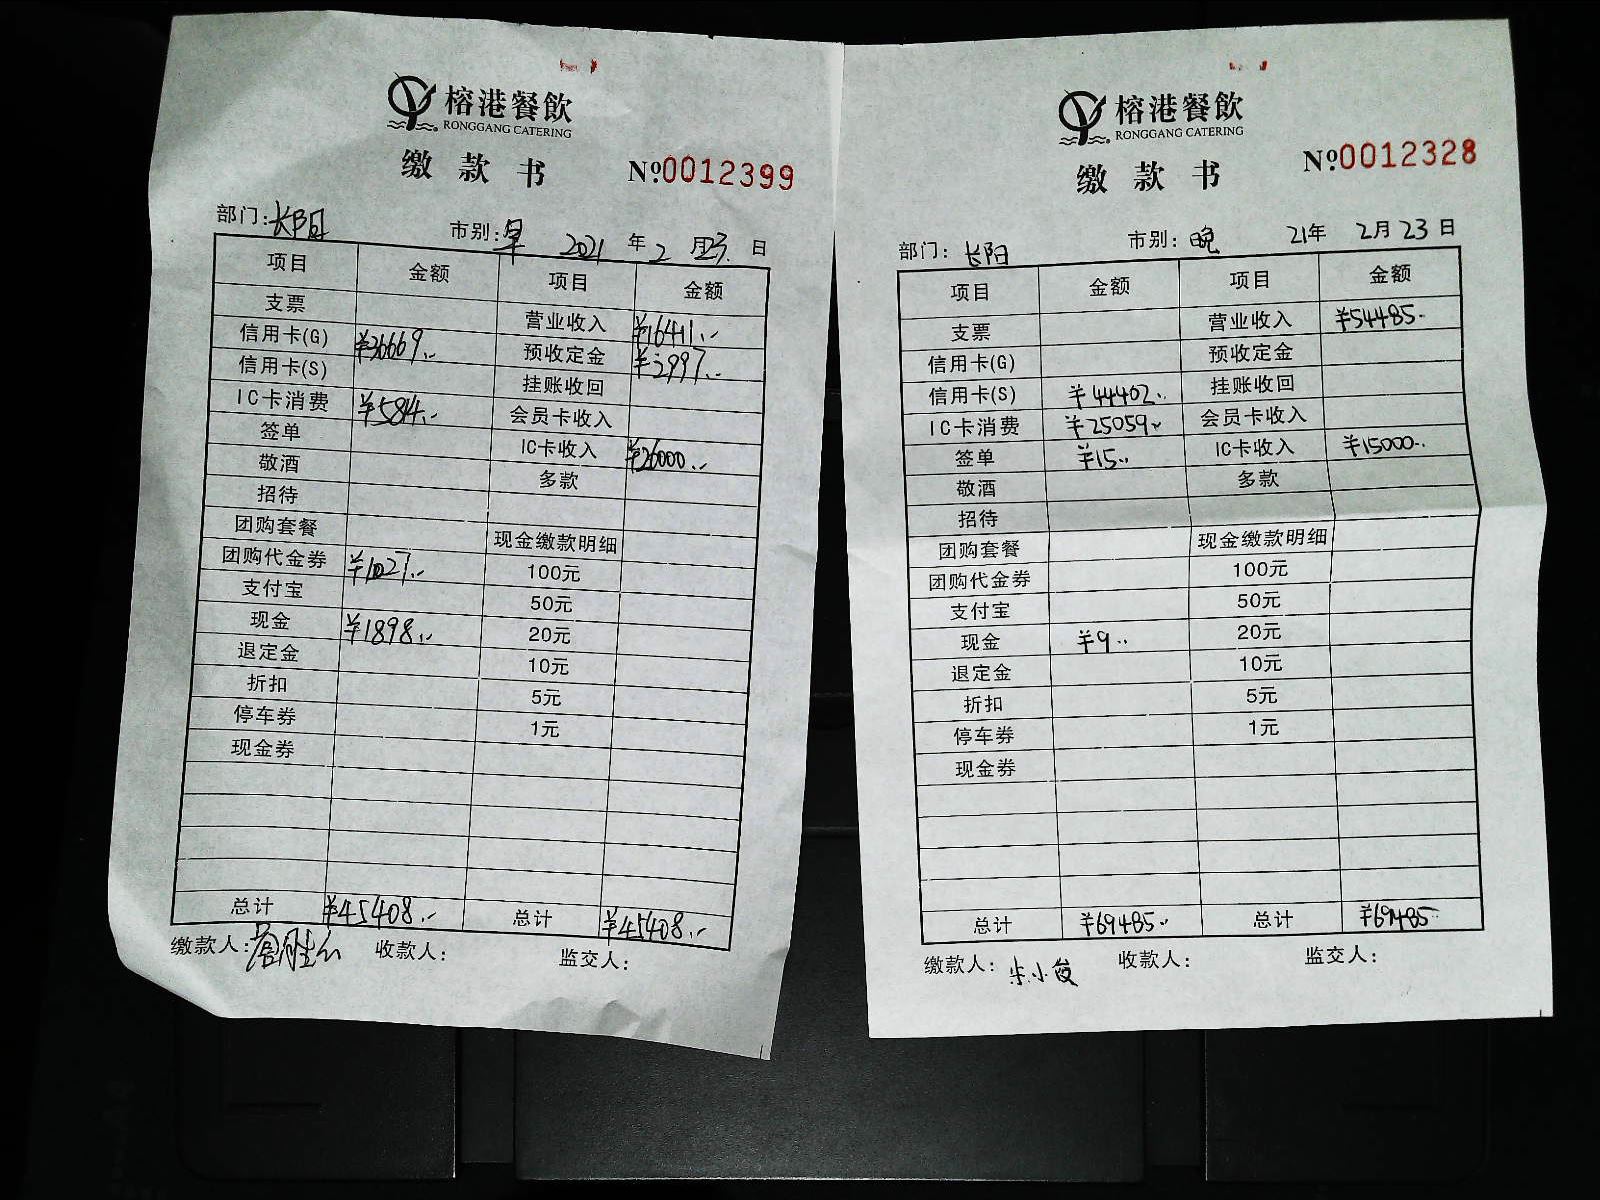 榕港餐飲
RONGGANG CATERING
缴款书 №0012399
部门: 长阳 市别: 早 2021 年 2 月 23 日
项目 金额 项目 金额
支票 营业收入 ¥16411.-
信用卡(G) ¥36669.- 预收定金 ¥2997.-
信用卡(S) 挂账收回
IC卡消费 ¥5814.- 会员卡收入
签单 IC卡收入 ¥26000.-
敬酒 多款
招待
团购套餐 现金缴款明细
团购代金券 ¥1027.- 100元
支付宝 50元
现金 ¥1898.- 20元
退定金 10元
折扣 5元
停车券 1元
现金券
总计 ¥45408.- 总计 ¥45408.-
缴款人: 收款人: 监交人:
榕港餐飲
RONGGANG CATERING
缴款书 №0012328
部门: 长阳 市别: 晚 21年 2月 23 日
项目 金额 项目 金额
支票 营业收入 ¥54485.-
信用卡(G) 预收定金
信用卡(S) ¥44402.- 挂账收回
IC卡消费 ¥25059.- 会员卡收入
签单 ¥15.- IC卡收入 ¥15000.-
敬酒 多款
招待
团购套餐 现金缴款明细
团购代金券 100元
支付宝 50元
现金 ¥9.- 20元
退定金 10元
折扣 5元
停车券 1元
现金券
总计 ¥69485.- 总计 ¥69485.-
缴款人: 朱小俊 收款人: 监交人: